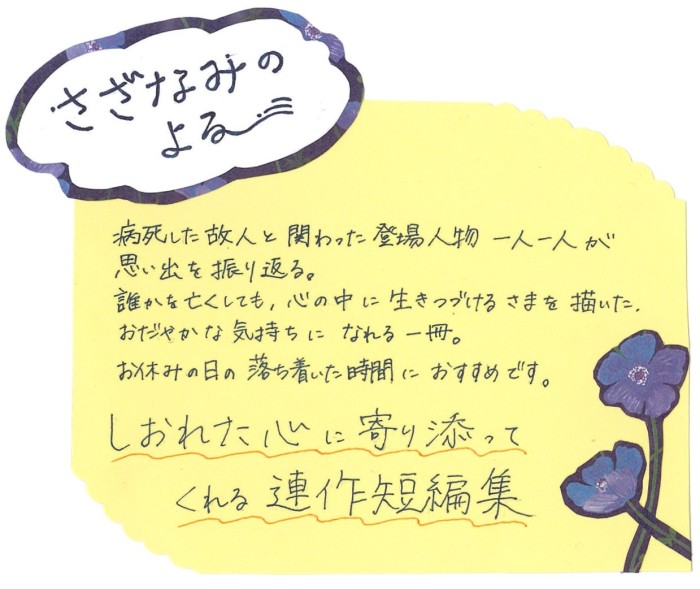 さざなみの
よる
病死した故人と関わった登場人物一人一人が
思い出を振り返る。
誰かを亡くしても、心の中に生きつづけるさまを描いた、
おだやかな気持ちになれる一冊。
お休みの日の落ち着いた時間におすすめです。
しおれた心に寄り添って
くれる連作短編集